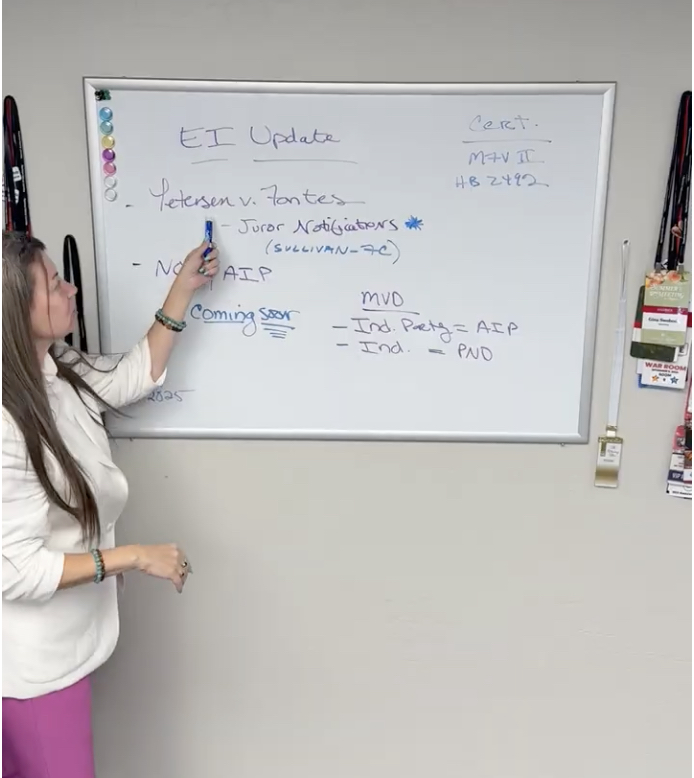 EI Update
Cert.
MFV II
HB 2492
- Petersen v. Fontes
- Juror Notifications *
(SULLIVAN-7C)
- NO AIP
Coming soon
MVD
- Ind. Party = AIP
- Ind. = PND
2025
WAR ROOM